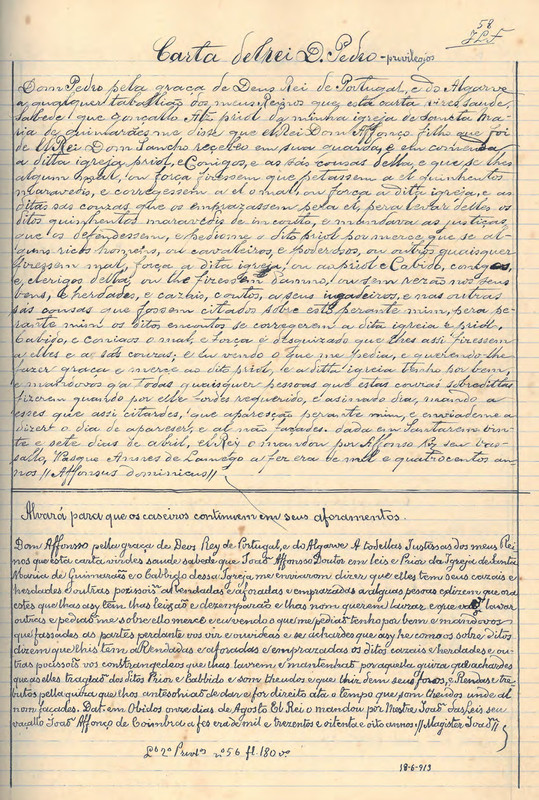 58
J.L.F.
Carta delrei D. Pedro - privilegios
Dom Pedro pela graça de Deus Rei de Portugal, e do Algarve
a qualquer taballião dos meus Reinos que esta carta vires saude,
Sabede que Gonçallo priol da minha igreja de Sancta Ma-
ria de guimarães me disse que el Rei Dom Affonço filho que foi
de el Rei Dom Sancho recebeo em sua guarda, e em comenda
a ditta igreja priol, e Conigos, e as sás cousas della, e que se lhes
algum mal, ou força fizessem que peitassem a el quinhentos
maravedis, e corregessem a el o mal, ou força a ditta igreja, e as
dittas sás couzas que os emprazassem pera el, pera levar delles os
ditos quinhentos maravedis de incouto, e mandava as justiças
que os defendessem, e pediome o dito priol por merce que se al-
guns ricos homens, ou cavalheiros, e poderosos, ou outros quaisquer
fizessem mal, força a dita igreja, ou ao priol e Cabido, conigos,
e clerigos della, ou lhe fizessem damno, ou sem rezão nos seus
bens, e herdades, e cazais, coutos, a seus lugadeiros, e nas outras
sás cousas que fossem citados sobre esto perante mim, pera pe-
rante mim os ditos encoutos se corregerem a dita igreia e priol,
Cabido, e Conigos o mal, e força e desguizado que lhes assi fizessem
a elles e as sás couzas; e Eu vendo o que me pedia, e querendo-lhe
fazer graça e merce ao dito priol, e a ditta igreia tenho por bem,
e mandovos q̃ a todas quaisquer pessoas que estas couzas sobreditas
fizerem quando por elle fordes requerido, e asinado dia, mando a
esses que assi citardes, que apareção perante mim, e enviademe a
dizer o dia de aparecer, e al não façades. dada em Santarem vin-
te e sete dias de abril, el Rey o mandou por Affonso seu vas-
sallo, Vasque Annes de Lamego a fez era de mil e quatrocentos an-
nos // Affonsus dominicus //
Alvará para que os caseiros continuem em seus aforamentos.
Dom Affonsso pella graça de Deos Rey de Portugal, e do Algarve A todellas Justissas dos meus Rei-
nos que esta carta virdes saude sabede que Joaõ Affonso Doutor em leis e Prior da Igreja de Santa
Maria de Guimarães e o Cabbido dessa Igreja me enviarom dizer que elles tem seus cazais e
herdades e outras possisois aRendadas e aforadas e emprazadas a alguas pesoas e dizem que ora
estes que lhas asy tem lhas leixaõ e dezemparaõ e lhas nom querem lavrar, e que vaõ lavrar
outras e pediaõ me sobre ello merce e eu vendo o que me pediaõ tenho por bem e mandovos
que fassades as partes perdante vos vir e ouvideas e se achardes que asy he como os sobre ditos
dizem que lhis tem aRendadas e aforadas e emprazadas os ditos cazais e herdades e ou-
tras possisois vos constranjede os que lhas lavrem e mantenhaõ por aquella guiza que achardes
que as elles tragiaõ dos ditos Prior e Cabbido e som theudos e que lhis dem seus foros, e Rendas e tre-
butos pella guiza que lhos antes ohiaõ de dar e for direito ata o tempo que som theudos unde al
nom façades. Dat. em Obidos onze dias de Agosto El Rei o mandou por Mestre Joaõ das Leis seu
vaçallo Joaõ Affonço de Coimbra a fes era de mil e trezentos e oitenta e oito annos. // Magister Joaõ //
L.º 2º Privos nº 56 fl. 180 vº
18-6-913